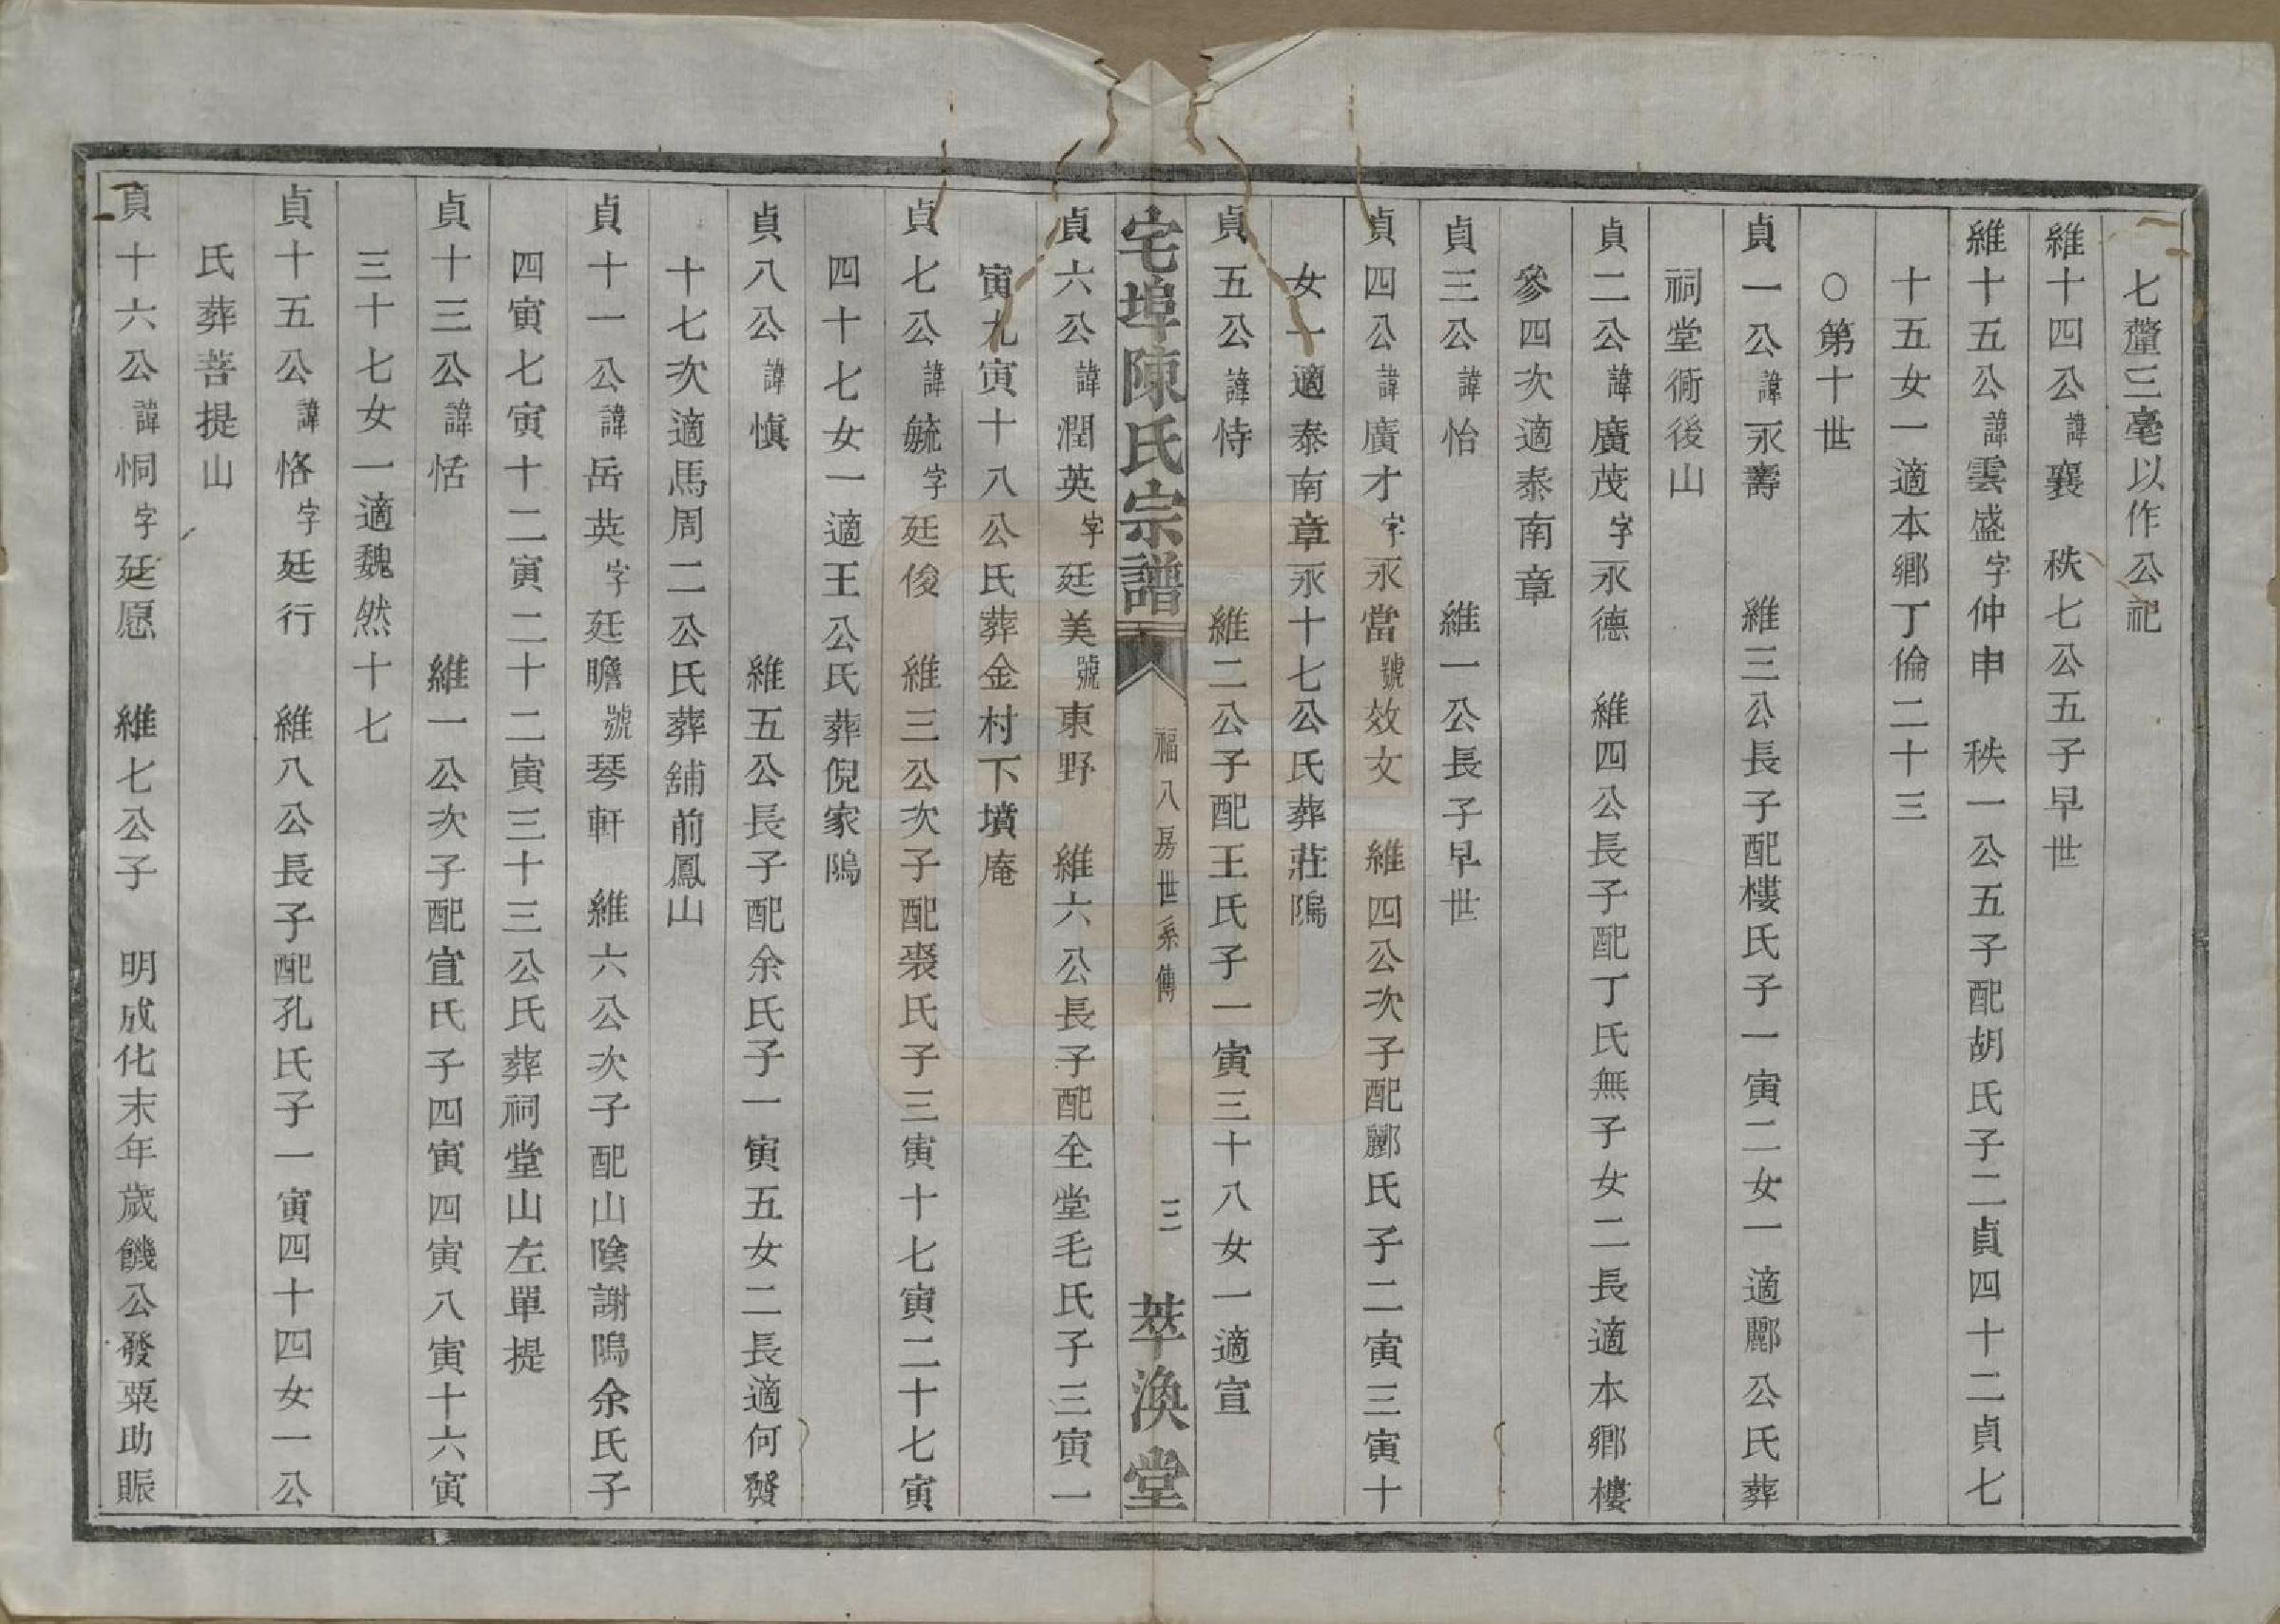 七釐三毫以作公祀
維十四公諱襄　秩七公五子早世
維十五公諱雲盛字仲申　秩一公五子配胡氏子二貞四十二貞七
十五女一適本鄉丁倫二十三
○第十世
貞一公諱永壽　維三公長子配樓氏子一寅二女一適酈公氏葬
祠堂衕後山
貞二公諱廣茂字永德　維四公長子配丁氏無子女二長適本鄉樓
參四次適泰南章
貞三公諱怡　維一公長子早世
貞四公諱廣才字永當號效文　維四公次子配酈氏子二寅三寅十
女一適泰南章永十七公氏葬莊隝
貞五公諱恃　維二公子配王氏子一寅三十八女一適宣
宅埠陳氏宗譜　福八房世系傳　三　萃渙堂
貞六公諱潤英字廷美號東野　維六公長子配全堂毛氏子三寅一
寅九寅十八公氏葬金村下墳庵
貞七公諱毓字廷俊　維三公次子配裘氏子三寅十七寅二十七寅
四十七女一適王公氏葬倪家隝
貞八公諱愼　維五公長子配余氏子一寅五女二長適何發
十七次適馬周二公氏葬舖前鳳山
貞十一公諱岳英字廷瞻號琴軒　維六公次子配山陰謝隝余氏子
四寅七寅十二寅二十二寅三十三公氏葬祠堂山左單提
貞十三公諱恬　維一公次子配宣氏子四寅四寅八寅十六寅
三十七女一適魏然十七
貞十五公諱恪字廷行　維八公長子配孔氏子一寅四十四女一公
氏葬菩提山
貞十六公諱恫字廷愿　維七公子　明成化末年歲饑公發粟助賑